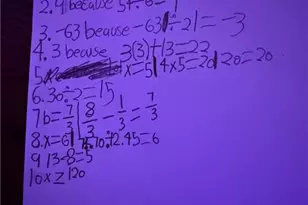 2. 9 because 5+ 6=
3. -63 because -63 ÷ 21 = -3
4. 3 because 3(3)+13=22
5 x=5 | 4x5=20 | 20=20
6. 30÷2=15
7 b= 7/3 | 8/3 - 1/3 = 7/3
8. x=6 70÷2.45=6
9 13-8=5
10 x≥120